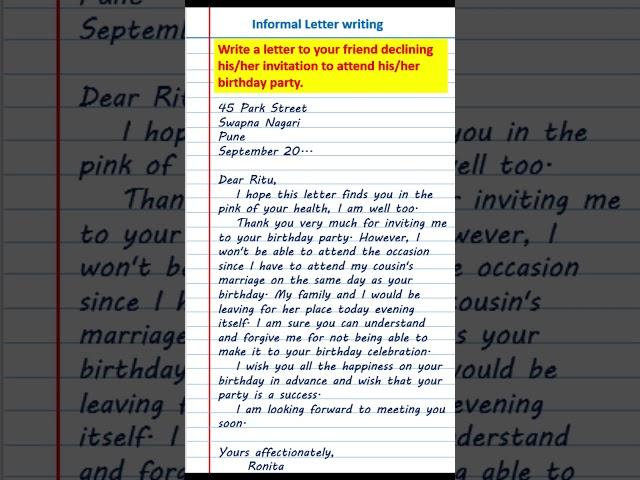 Informal Letter writing
Write a letter to your friend declining
his/her invitation to attend his/her
birthday party.
45 Park Street
Swapna Nagari
Pune
September 20...
Dear Ritu,
I hope this letter finds you in the
pink of your health, I am well too.
Thank you very much for inviting me
to your birthday party. However, I
won't be able to attend the occasion
since I have to attend my cousin's
marriage on the same day as your
birthday. My family and I would be
leaving for her place today evening
itself. I am sure you can understand
and forgive me for not being able to
make it to your birthday celebration.
I wish you all the happiness on your
birthday in advance and wish that your
party is a success.
I am looking forward to meeting you
soon.
Yours affectionately,
Ronita